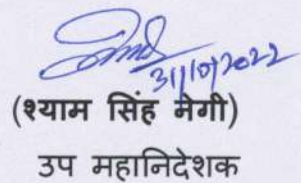 31/10/2022
(श्याम सिंह नेगी)
उप महानिदेशक